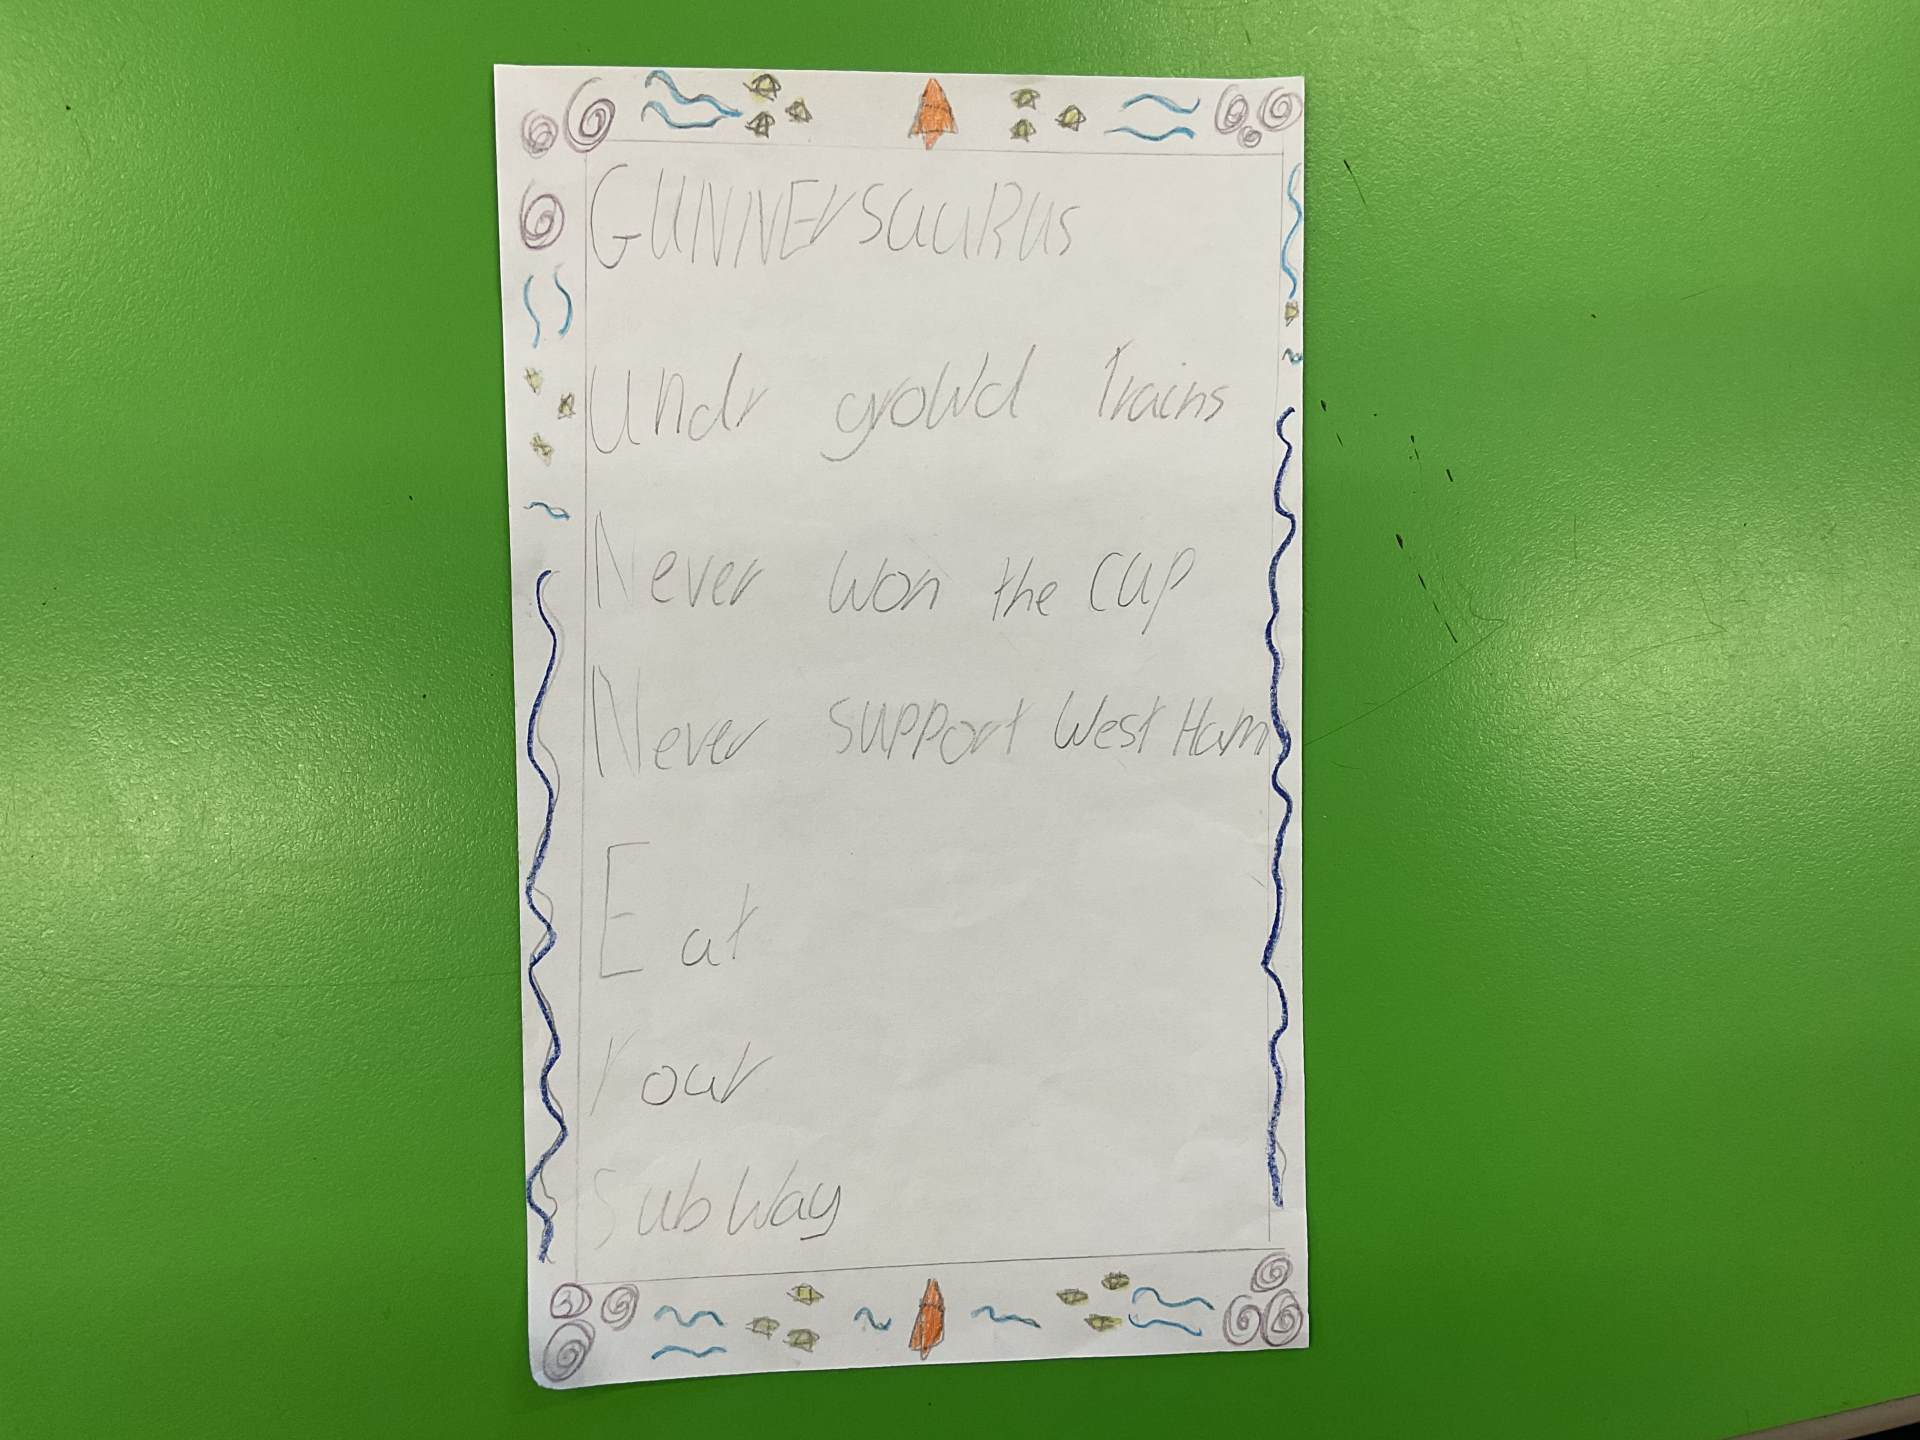 GUNNErSauRus
Undr growd Trains
Never won the cup
Never support West Ham
Eat
Your
SubWay